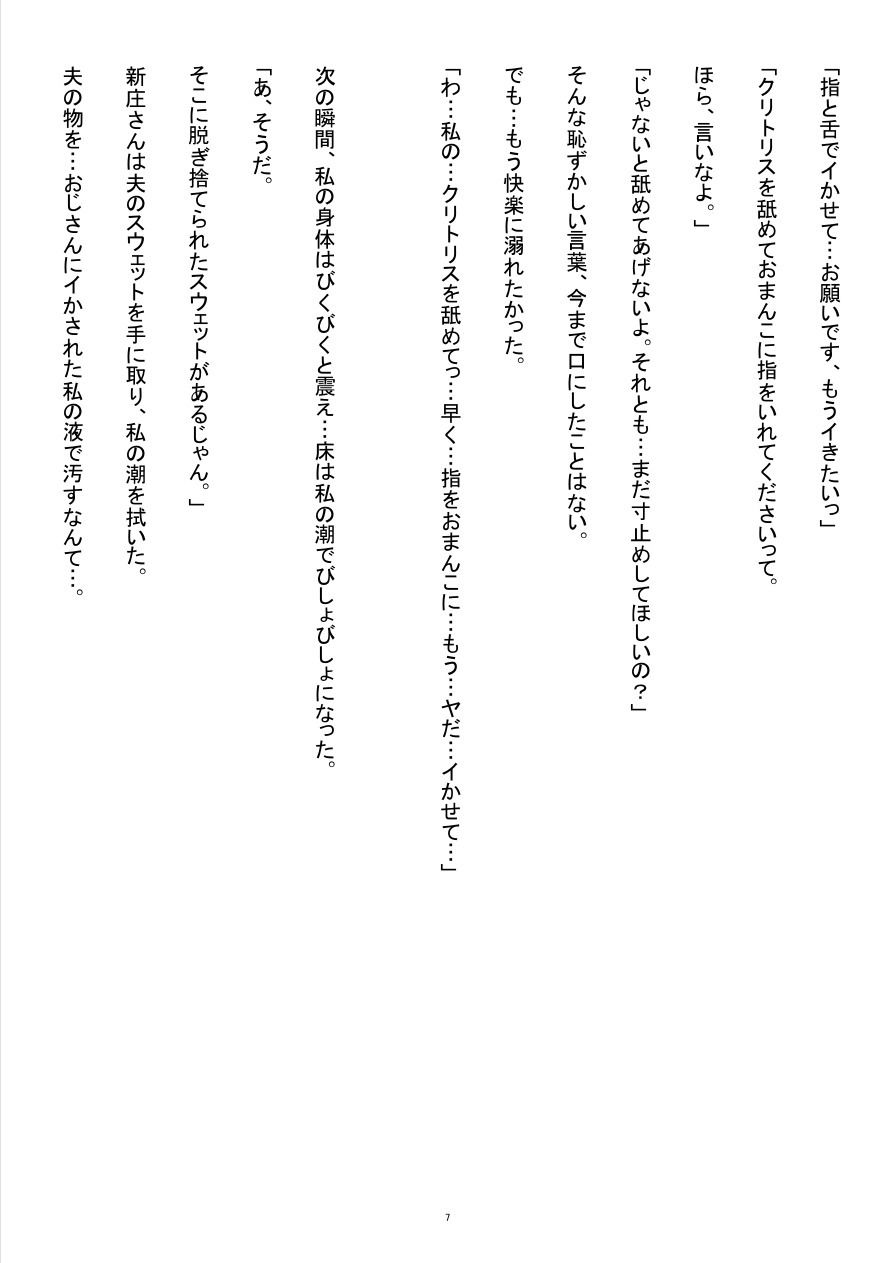 「指と舌でイかせて…お願いです、もうイきたいっ」
「クリトリスを舐めておまんこに指をいれてくださいって。
ほら、言いなよ。」
「じゃないと舐めてあげないよ。それとも…まだ寸止めしてほしいの？」
そんな恥ずかしい言葉、今まで口にしたことはない。
でも…もう快楽に溺れたかった。
「わ…私の…クリトリスを舐めてっ…早く…指をおまんこに…もう…ヤだ…イかせて…」
次の瞬間、私の身体はびくびくと震え…床は私の潮でびしょびしょになった。
「あ、そうだ。
そこに脱ぎ捨てられたスウェットがあるじゃん。」
新庄さんは夫のスウェットを手に取り、私の潮を拭いた。
夫の物を…おじさんにイかされた私の液で汚すなんて…。
7